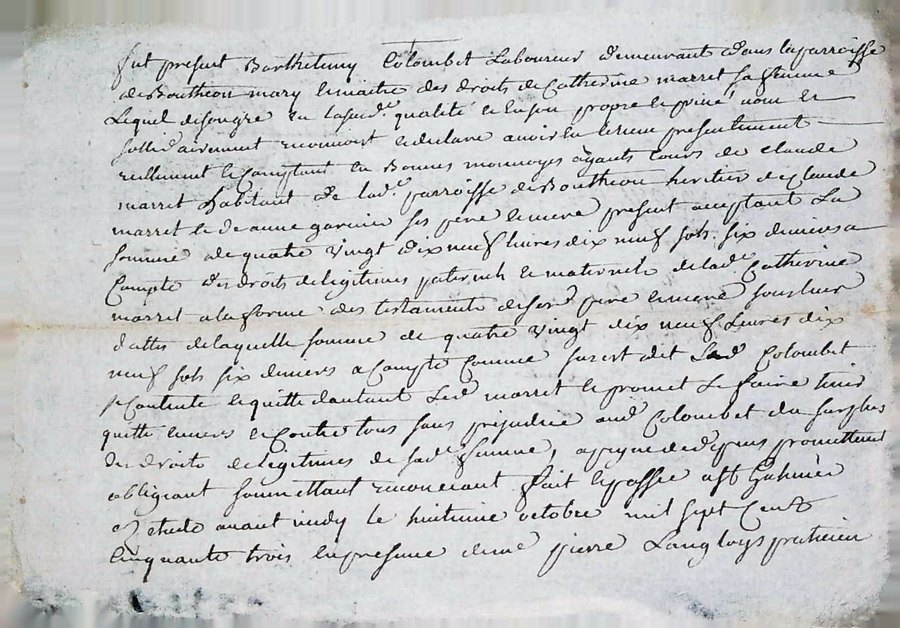 fut present Barthelemy Colombet Laboureur demeurant dans la parroisse
de Bouthéon mary et maitre des droits de Catherine marret sa femme
Lequel de son gré en la susd.e qualité et en son propre et privé nom et
sollid.airement reconnoit et declare avoir eu et receu presentement
reellement et Comptant en Bonnes monnoyes ayants Cours de claude
marret habitant de lad.e parroisse de Bouthéon heritier de Claude
marret et de anne garnier ses pere et mere present acceptant La
somme de quatre vingt dix neuf livres dix neuf sols six deniers a
Compte des droits de legitimes paternels et maternels de lad.e Catherine
marret a la forme des testaments de sesd. pere et mere sous leur
dattes de laquelle somme de quatre vingt dix neuf Livres dix
neuf sols six deniers a Compte Comme sus est dit Led Colombet
se Contente et quitte d'autant Led marret et promet Le faire tenir
quitte envers et Contre tous sans prejudice aud Colombet du surplus
des droits de legitimes de sad.e femme, a peyne de d depens promettent
obligeant soumettant renonceant fait et passé a St Galmier
etude avant midy Le huitieme octobre mil sept Cent
Cinquante trois en presence de me pierre Langloys praticien